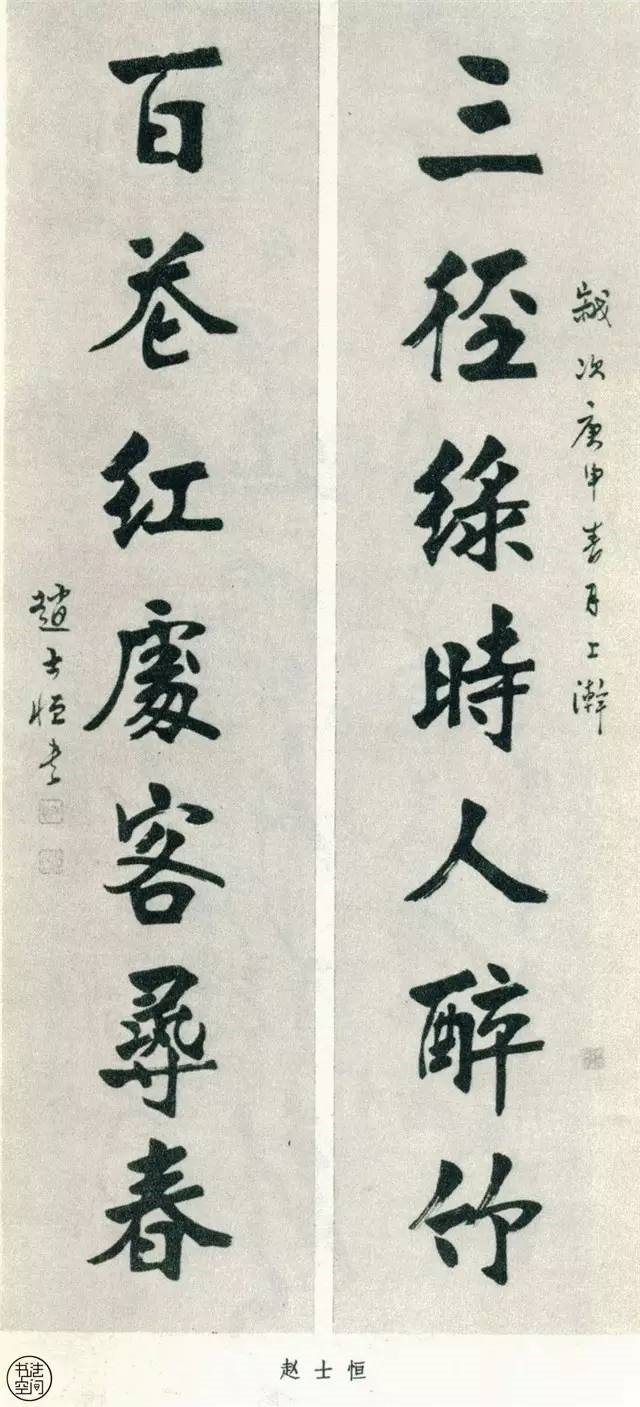 歲次庚申春月上澣
三徑綠時人醉竹
百卷紅處客尋春
趙士恒書
赵士恒
书法
空间